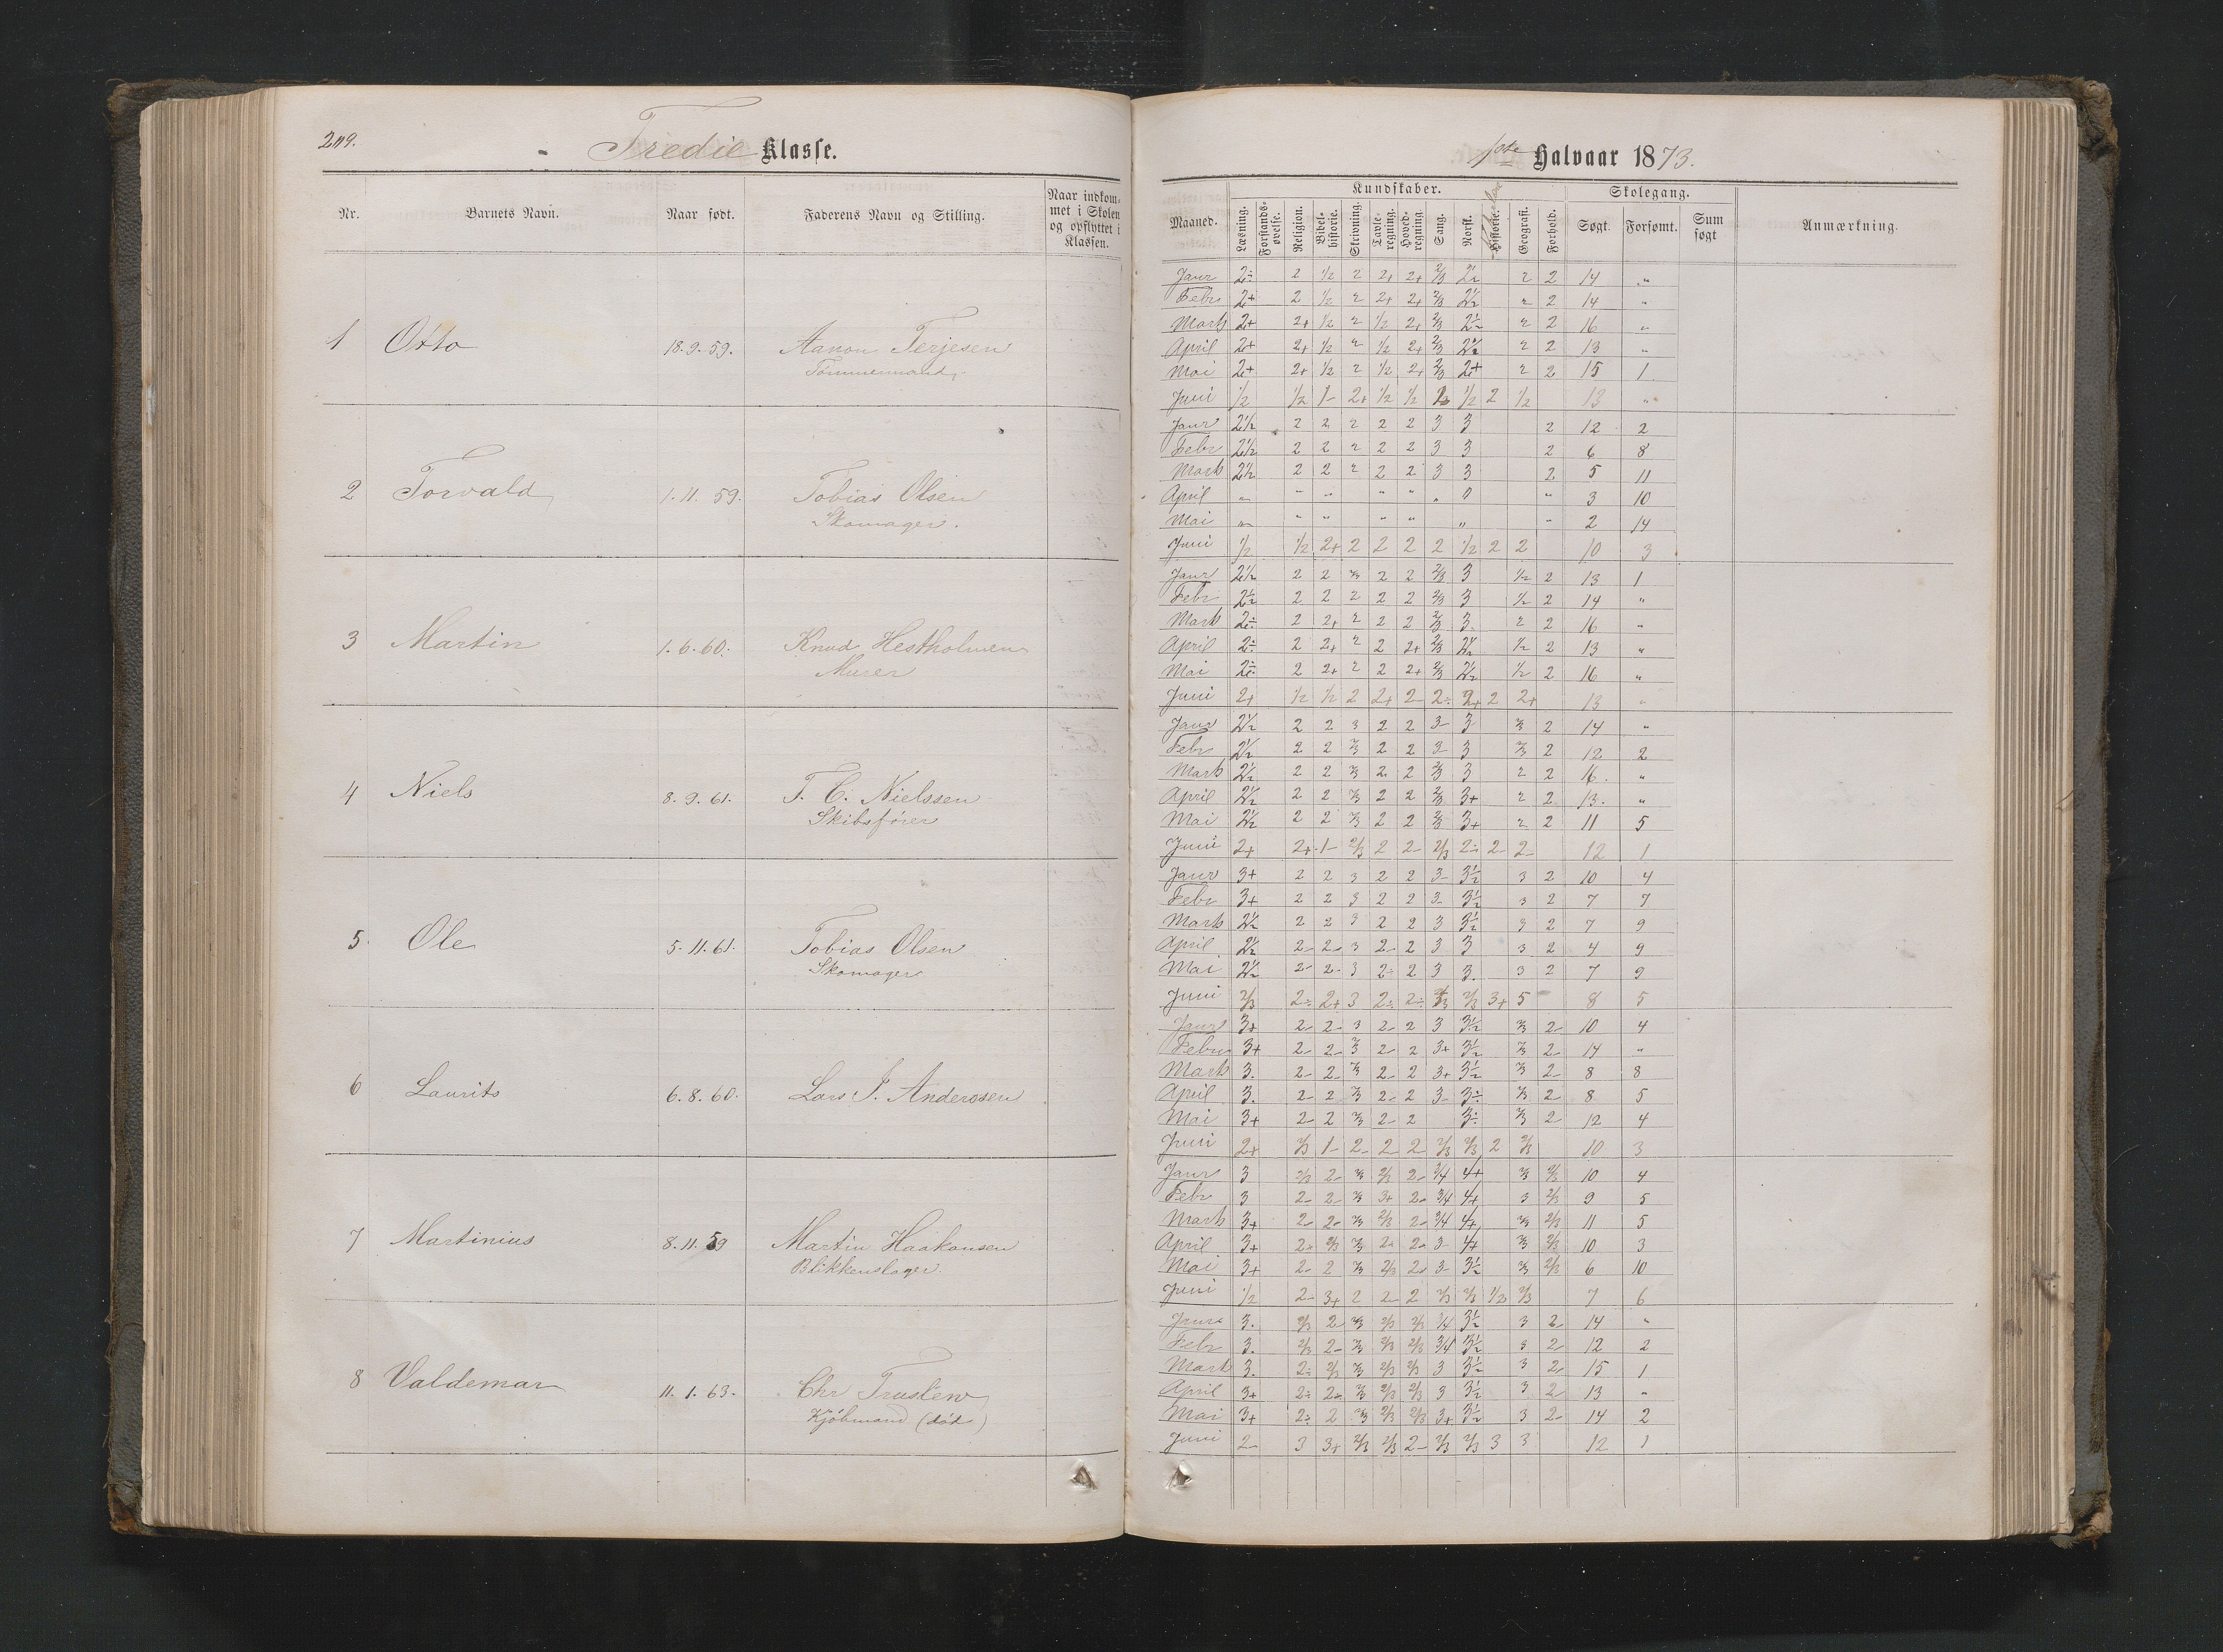 249.
Tredie Klasse.
Nr. Barnets Navn. Naar født. Faderens Navn og Stilling. Naar indkommet i Skolen og opflyttet i Klassen.
1 Otto 18.9.59. Aanon Terjesen
Tømmermand,
2 Torvald 1.11.59. Tobias Olsen
Skomager.
3 Martin 1.6.60. Knud Hestholmen
Murer
4 Niels 8.9.61. T. C. Nielssen
Skibsfører
5. Ole 5.11.61. Tobias Olsen
Skomager
6 Laurits 6.8.60. Lars J. Anderssen
7 Martinius 8.11.59 Martin Haakonsen
Blikkenslager.
8 Valdemar 11.1.63. Chr Truslew
Kjøbmand (død)
1ste Halvaar 1873.
Kundskaber. Skolegang.
Maaned. Læsning. Forstandsøvelse. Religion. Bibelhistorie. Skrivning. Tavleregning. Hovedregning. Sang. Norsk. Historie. Geografi. Forhold. Søgt. Forsømt. Sum søgt Anmærkning.
Janr 2÷ 2 1/2 2 2+ 2+ 2/3 2 1/2 2 2 14 "
Febr 2+ 2 1/2 2 2+ 2+ 2/3 2 1/2 2 2 14 "
Marts 2+ 2+ 1/2 2 1/2 2+ 2/3 2 1/2 2 2 16 "
April 2+ 2+ 1/2 2 1/2 2+ 2/3 2 1/2 2 2 13 "
Mai 2+ 2+ 1/2 2 1/2 2+ 2/3 2+ 2 2 15 1
Juni 1/2 1/2 1- 2+ 1/2 1/2 1/2 2 1/2 13 "
Janr 2 1/2 2 2 2 2 2 3 3 2 12 2
Febr 2 1/2 2 2 2 2 2 3 3 2 6 8
Marts 2 1/2 2 2 2 2 2 3 3 2 5 11
April " " " " " " " 3 10
Mai " " " " " " " 2 14
Juni 1/2 1/2 2+ 2 2 2 2 1/2 2 2 10 3
Janr 2 1/2 2 2 2/3 2 2 2/3 3 1/2 2 13 1
Febr 2 1/2 2 2 2 2 2 2/3 3 1/2 2 14 "
Marts 2÷ 2 2+ 2 2 2 2/3 3. 2 2 16 "
April 2÷ 2 2+ 2 2 2+ 2/3 2 1/2 1/2 2 13 "
Mai 2÷ 2 2+ 2 2 2+ 2/3 2 1/2 1/2 2 16 "
Juni 2+ 1/2 1/2 2 2+ 2 2÷ 2+ 2 2+ 13 "
Janr 2 1/2 2 2 3 2 2 3 3 2/3 2 14 "
Febr 2 1/2 2 2 2/3 2 2 3 3 2/3 2 12 2
Marts 2 1/2 2 2 2/3 2 2 2/3 3 2 2 16. "
April 2 1/2 2 2 2/3 2 2 2/3 3+ 2 2 13. "
Mai 2 1/2 2 2 2/3 2 2 2/3 3+ 2 2 11 5
Juni 2+ 2+ 1- 2/3 2 2 2/3 2÷ 2 2 12 1
Janr 3+ 2 2 3 2 2 3 3 1/2 3 2 10 4
Febr 3+ 2 2 3 2 2 3 3 1/2 3 2 7 7
Marts 2 1/2 2 2 3 2 2 3 3 1/2 3 2 7 9
April 2 1/2 2 2 3 2 2 3 3 3 2 4 9
Mai 2 1/2 2 2 3 2 2 3 3. 3 2 7 9
Juni 2/3 2÷ 2+ 3 2÷ 2÷ 2/3 3+ 5 8 5
Janr 3+ 2 2 3 2 2 3 3 1/2 2/3 2 10 4
Febr 3+ 2 2 2/3 2 2 3+ 3 1/2 2/3 2 14 "
Marts 3. 2 2 2/3 2 2 3+ 3 1/2 2/3 2 8 8
April 3. 2 2 2/3 2 2 3 3÷ 2/3 2 8 5
Mai 3+ 2 2 2/3 2 2 3÷ 2/3 2 12 4
Juni 2+ 2/3 1 2 2 2 2/3 2/3 2 2/3 10 3
Janr 3 2/3 2 2/3 2/3 2 3/4 4+ 2/3 2/3 10 4
Febr 3 2 2 2/3 3+ 2 3/4 4+ 3 2/3 9 5
Marts 3+ 2 2 2/3 2/3 2 3/4 4+ 2/3 2/3 11 5
April 3+ 2÷ 2/3 2/3 2 2 3 4+ 2/3 2/3 10 3
Mai 3+ 2 2 2/3 2/3 2 3 3 1/2 2/3 2/3 6 10
Juni 1/2 2 3+ 2 2 2 2/3 2/3 1/2 2/3 7 6
Janr 3. 2/3 2 2/3 2/3 2/3 3/4 3 1/2 3 2 14 "
Febr 3. 2/3 2 2/3 2/3 2/3 3/4 3 1/2 3 2 12 2
Marts 3. 2÷ 2/3 2/3 2/3 2/3 3 3 1/2 3 2 15 1
April 3+ 2÷ 2 2/3 2/3 2/3 3 3 1/2 3 2 13 "
Mai 3+ 2÷ 2 2/3 2/3 2/3 3+ 3 1/2 3 2 14 2
Juni 2 3 3+ 2/3 2/3 2 2/3 2/3 3 3 12 1